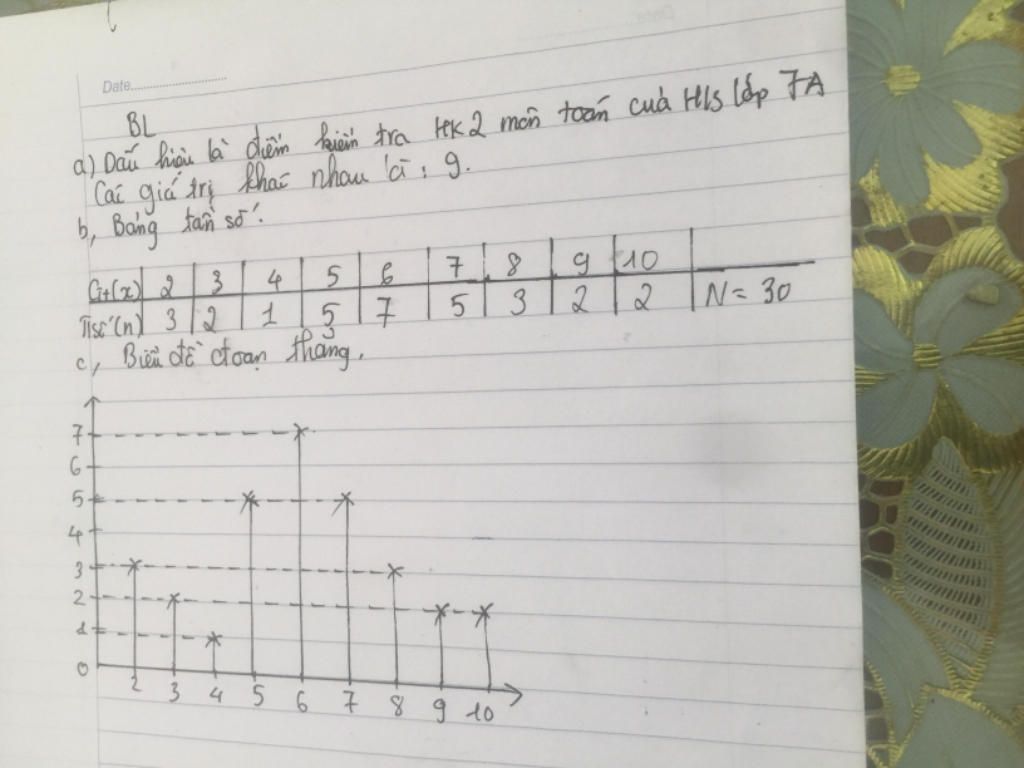 Date
BL
a) Dấu hiệu là điểm kiểm tra HK2 môn toán cuả HS lớp 7A
Các giá trị khác nhau là: 9.
b, Bảng tần số.
Gt(x) 2 3 4 5 6 7 8 9 10
Tsố(n) 3 2 1 5 7 5 3 2 2 N = 30
c, Biểu đồ đoạn thẳng.
7
6
5
4
3
2
1
0
2 3 4 5 6 7 8 9 10